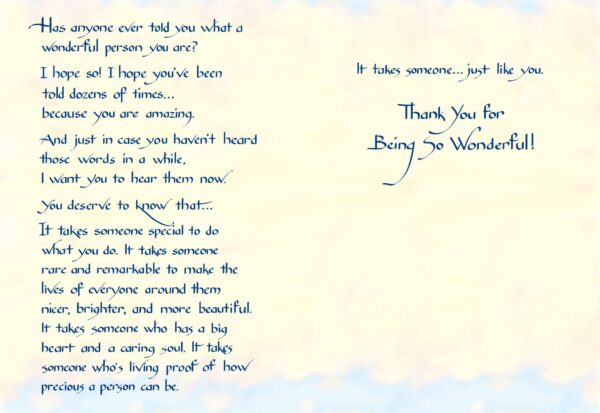 Has anyone ever told you what a
wonderful person you are?
I hope so! I hope you've been
told dozens of times...
because you are amazing.
And just in case you haven't heard
those words in a while,
I want you to hear them now.
You deserve to know that...
It takes someone special to do
what you do. It takes someone
rare and remarkable to make the
lives of everyone around them
nicer, brighter, and more beautiful.
It takes someone who has a big
heart and a caring soul. It takes
someone who's living proof of how
precious a person can be.
It takes someone... just like you.
Thank You for
Being So Wonderful!